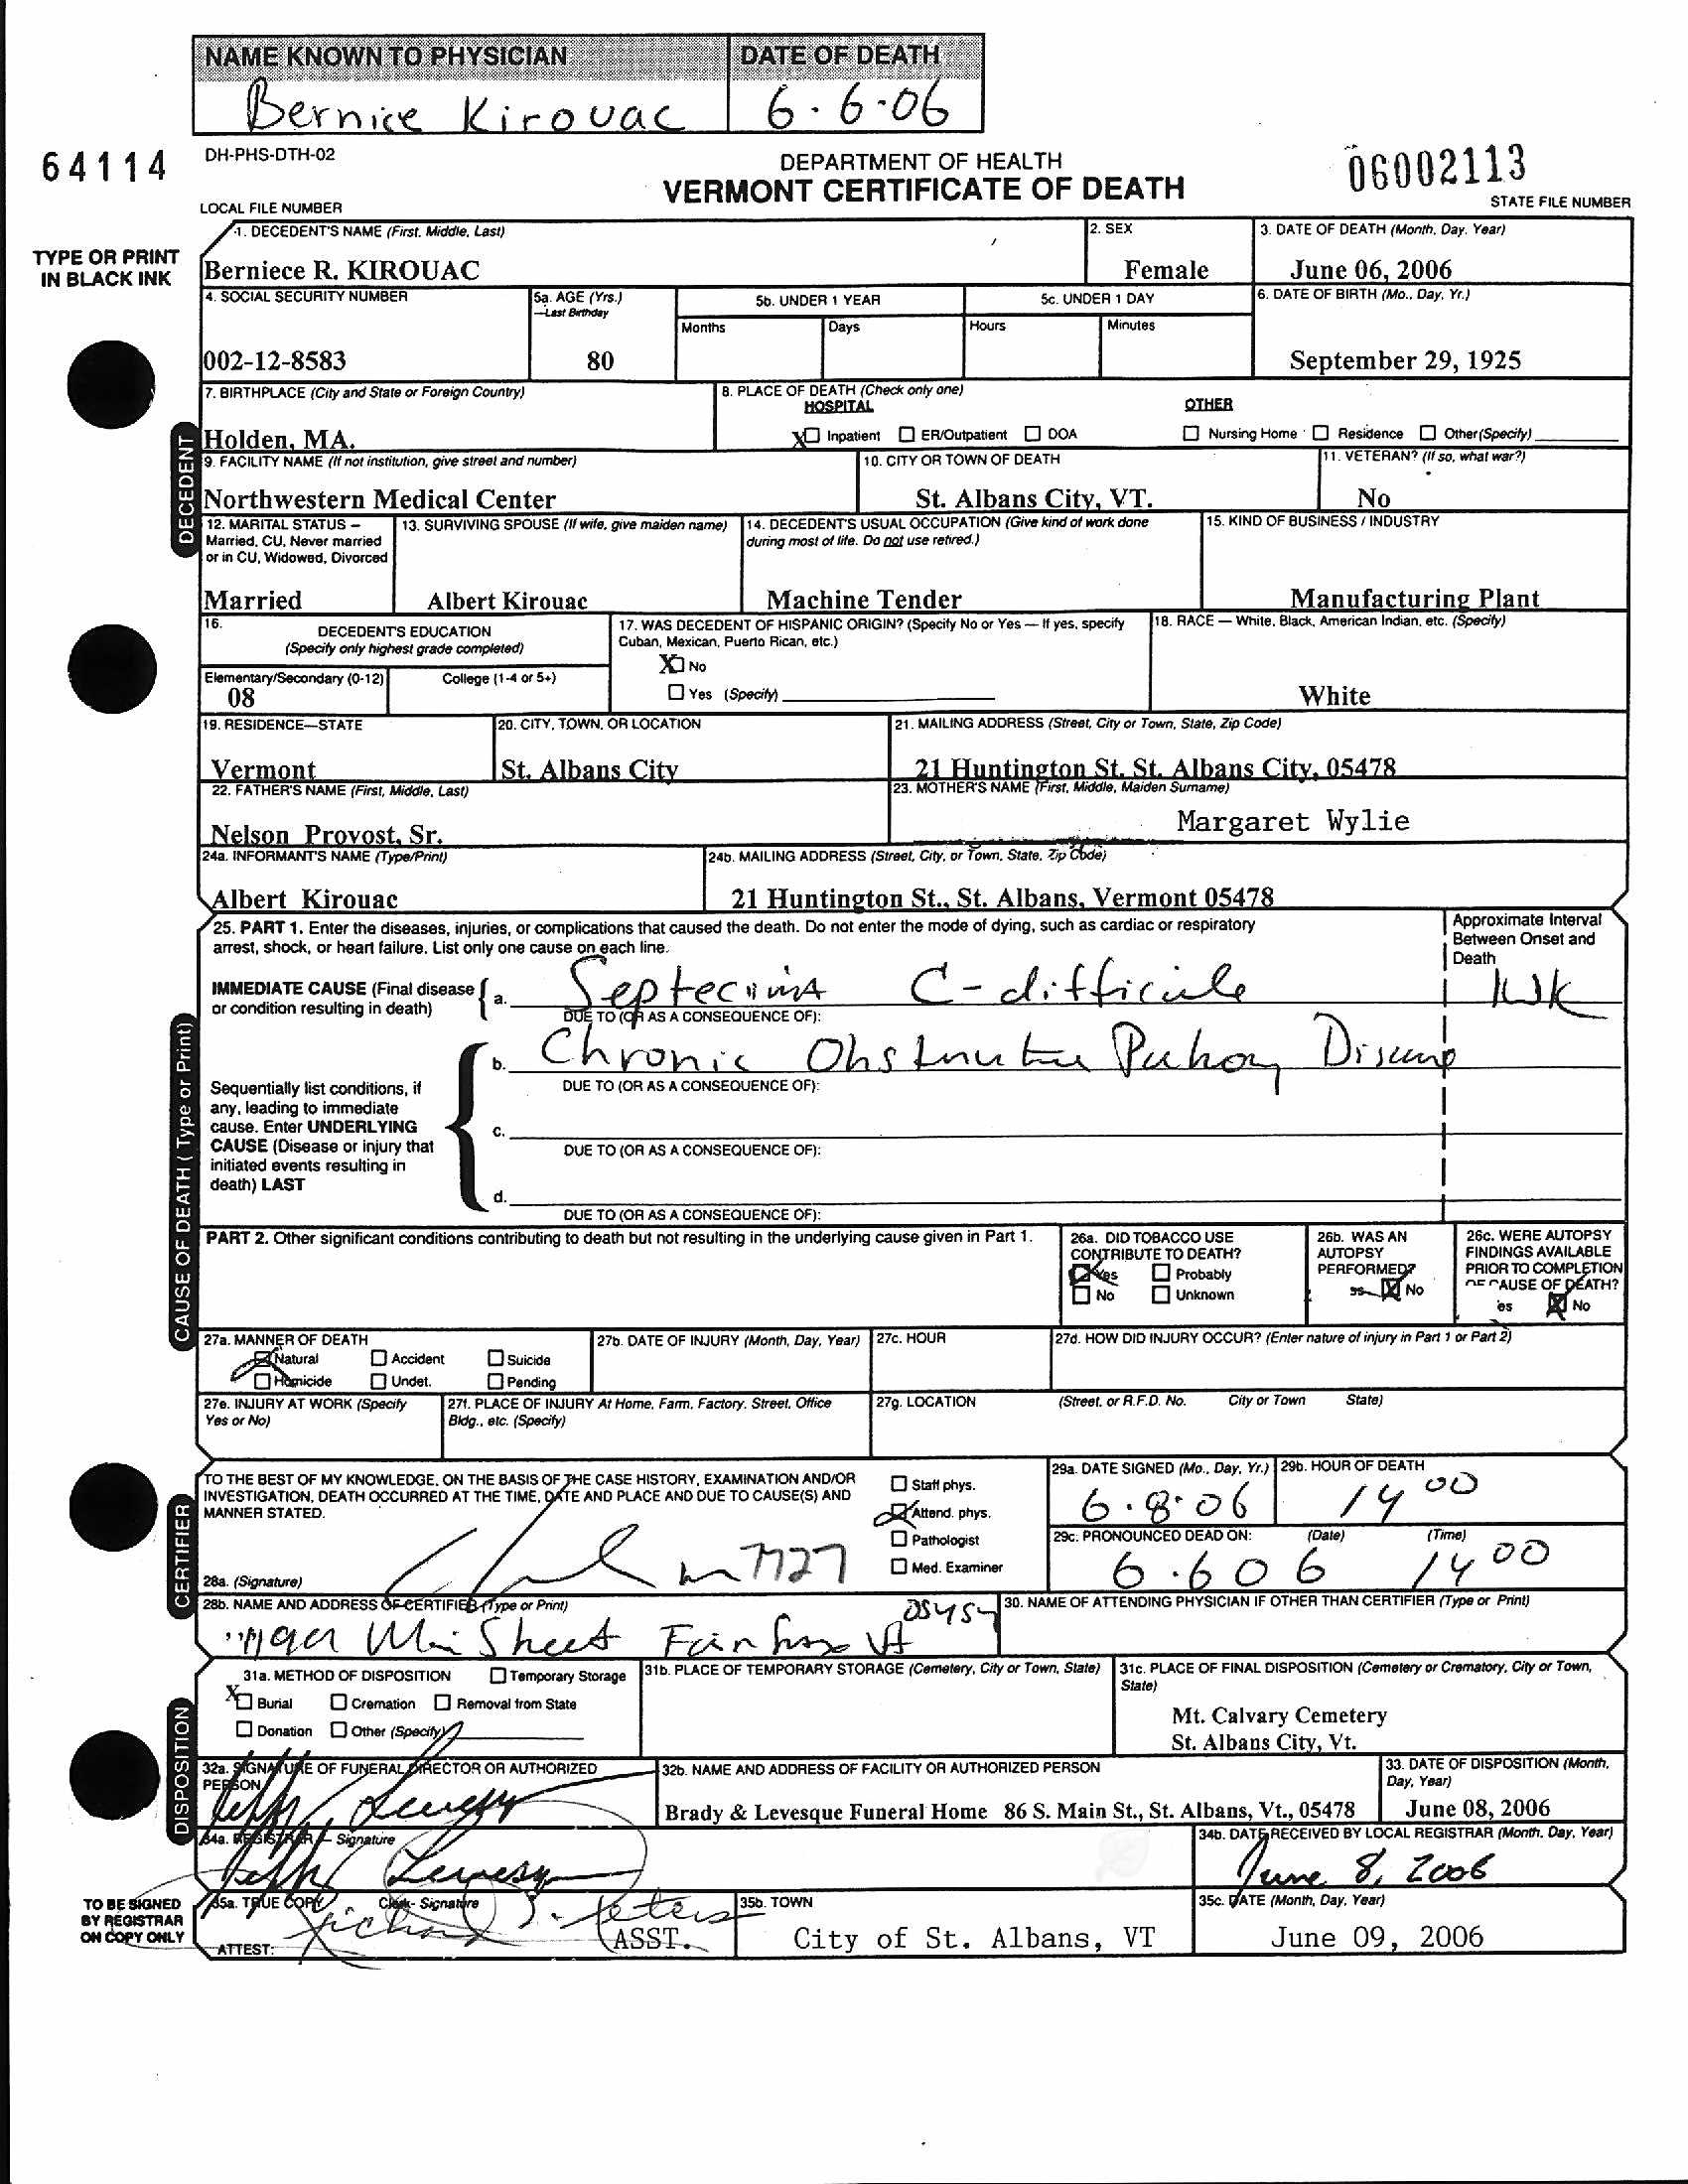 NAME KNOWN TO PHYSICIAN DATE OF DEATH
Bernice Kirouac 6·6·06
64114 DH-PHS-DTH-02 DEPARTMENT OF HEALTH 06002113
VERMONT CERTIFICATE OF DEATH
LOCAL FILE NUMBER STATE FILE NUMBER
TYPE OR PRINT
IN BLACK INK
1. DECEDENT'S NAME (First, Middle, Last) 2. SEX 3. DATE OF DEATH (Month, Day, Year)
Berniece R. KIROUAC Female June 06, 2006
4. SOCIAL SECURITY NUMBER 5a. AGE (Yrs.) 5b. UNDER 1 YEAR 5c. UNDER 1 DAY 6. DATE OF BIRTH (Mo., Day, Yr.)
—Last Birthday
Months Days Hours Minutes
002-12-8583 80 September 29, 1925
7. BIRTHPLACE (City and State or Foreign Country) 8. PLACE OF DEATH (Check only one)
HOSPITAL OTHER
Holden, MA. X Inpatient ER/Outpatient DOA Nursing Home Residence Other (Specify)
DECEDENT
9. FACILITY NAME (If not institution, give street and number) 10. CITY OR TOWN OF DEATH 11. VETERAN? (If so, what war?)
Northwestern Medical Center St. Albans City, VT. No
12. MARITAL STATUS – 13. SURVIVING SPOUSE (If wife, give maiden name) 14. DECEDENT'S USUAL OCCUPATION (Give kind of work done 15. KIND OF BUSINESS / INDUSTRY
Married, CU, Never married during most of life. Do not use retired.)
or in CU, Widowed, Divorced
Married Albert Kirouac Machine Tender Manufacturing Plant
16. DECEDENT'S EDUCATION 17. WAS DECEDENT OF HISPANIC ORIGIN? (Specify No or Yes — If yes, specify 18. RACE — White, Black, American Indian, etc. (Specify)
(Specify only highest grade completed) Cuban, Mexican, Puerto Rican, etc.)
X No
Elementary/Secondary (0-12) College (1-4 or 5+)
08 Yes (Specify) White
19. RESIDENCE—STATE 20. CITY, TOWN, OR LOCATION 21. MAILING ADDRESS (Street, City or Town, State, Zip Code)
Vermont St. Albans City 21 Huntington St. St. Albans City, 05478
22. FATHER'S NAME (First, Middle, Last) 23. MOTHER'S NAME (First, Middle, Maiden Surname)
Nelson Provost, Sr. Margaret Wylie
24a. INFORMANT'S NAME (Type/Print) 24b. MAILING ADDRESS (Street, City, or Town, State, Zip Code)
Albert Kirouac 21 Huntington St., St. Albans, Vermont 05478
25. PART 1. Enter the diseases, injuries, or complications that caused the death. Do not enter the mode of dying, such as cardiac or respiratory Approximate Interval
arrest, shock, or heart failure. List only one cause on each line. Between Onset and
Death
IMMEDIATE CAUSE (Final disease a. C-difficile 1wk
or condition resulting in death) DUE TO (OR AS A CONSEQUENCE OF):
b. Chronic
Sequentially list conditions, if DUE TO (OR AS A CONSEQUENCE OF):
any, leading to immediate
cause. Enter UNDERLYING c.
CAUSE (Disease or injury that DUE TO (OR AS A CONSEQUENCE OF):
initiated events resulting in
death) LAST d.
DUE TO (OR AS A CONSEQUENCE OF):
CAUSE OF DEATH (Type or Print)
PART 2. Other significant conditions contributing to death but not resulting in the underlying cause given in Part 1. 26a. DID TOBACCO USE 26b. WAS AN 26c. WERE AUTOPSY
CONTRIBUTE TO DEATH? AUTOPSY FINDINGS AVAILABLE
Yes Probably PERFORMED? PRIOR TO COMPLETION
No Unknown No OF CAUSE OF DEATH?
No
27a. MANNER OF DEATH 27b. DATE OF INJURY (Month, Day, Year) 27c. HOUR 27d. HOW DID INJURY OCCUR? (Enter nature of injury in Part 1 or Part 2)
Natural Accident Suicide
Homicide Undet. Pending
27e. INJURY AT WORK (Specify 27f. PLACE OF INJURY At Home, Farm, Factory, Street, Office 27g. LOCATION (Street, or R.F.D. No. City or Town State)
Yes or No) Bldg., etc. (Specify)
CERTIFIER
TO THE BEST OF MY KNOWLEDGE, ON THE BASIS OF THE CASE HISTORY, EXAMINATION AND/OR Staff phys. 29a. DATE SIGNED (Mo., Day, Yr.) 29b. HOUR OF DEATH
INVESTIGATION, DEATH OCCURRED AT THE TIME, DATE AND PLACE AND DUE TO CAUSE(S) AND Attend. phys. 6·8·06 1400
MANNER STATED.
Pathologist 29c. PRONOUNCED DEAD ON: (Date) (Time)
28a. (Signature) 7727 Med. Examiner 6·6 06 1400
28b. NAME AND ADDRESS OF CERTIFIER (Type or Print) 05454 30. NAME OF ATTENDING PHYSICIAN IF OTHER THAN CERTIFIER (Type or Print)
VT
31a. METHOD OF DISPOSITION Temporary Storage 31b. PLACE OF TEMPORARY STORAGE (Cemetery, City or Town, State) 31c. PLACE OF FINAL DISPOSITION (Cemetery or Crematory, City or Town,
State)
X Burial Cremation Removal from State
Donation Other (Specify) Mt. Calvary Cemetery
St. Albans City, Vt.
DISPOSITION
32a. SIGNATURE OF FUNERAL DIRECTOR OR AUTHORIZED 32b. NAME AND ADDRESS OF FACILITY OR AUTHORIZED PERSON 33. DATE OF DISPOSITION (Month,
PERSON Day, Year)
Brady & Levesque Funeral Home 86 S. Main St., St. Albans, Vt., 05478 June 08, 2006
34a. REGISTRAR – Signature 34b. DATE RECEIVED BY LOCAL REGISTRAR (Month, Day, Year)
June 8, 2006
TO BE SIGNED
BY REGISTRAR
ON COPY ONLY
35a. TRUE COPY Clerk- Signature 35b. TOWN 35c. DATE (Month, Day, Year)
ATTEST: ASST. City of St. Albans, VT June 09, 2006